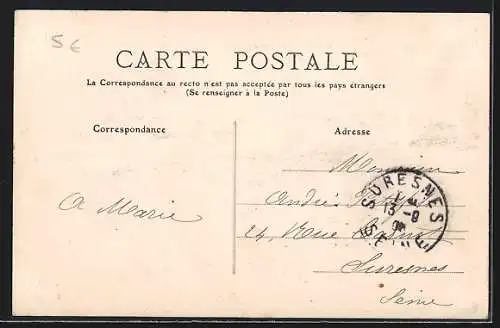 5€
CARTE POSTALE
La Correspondance au recto n'est pas acceptée par tous les pays étrangers
(Se renseigner à la Poste)
Correspondance
Adresse
Monsieur
André
A Marie
24, Rue
Suresnes
Seine
SURESNES
13 - 9
SEINE